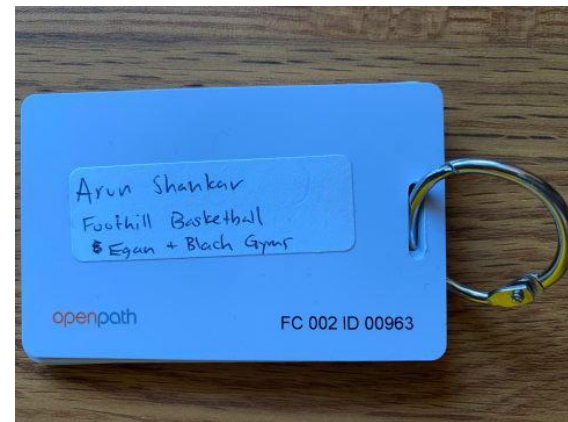 Arun Shankar
Foothill Basketball
$ Egan + Blach Gyms
openpath
FC 002 ID 00963